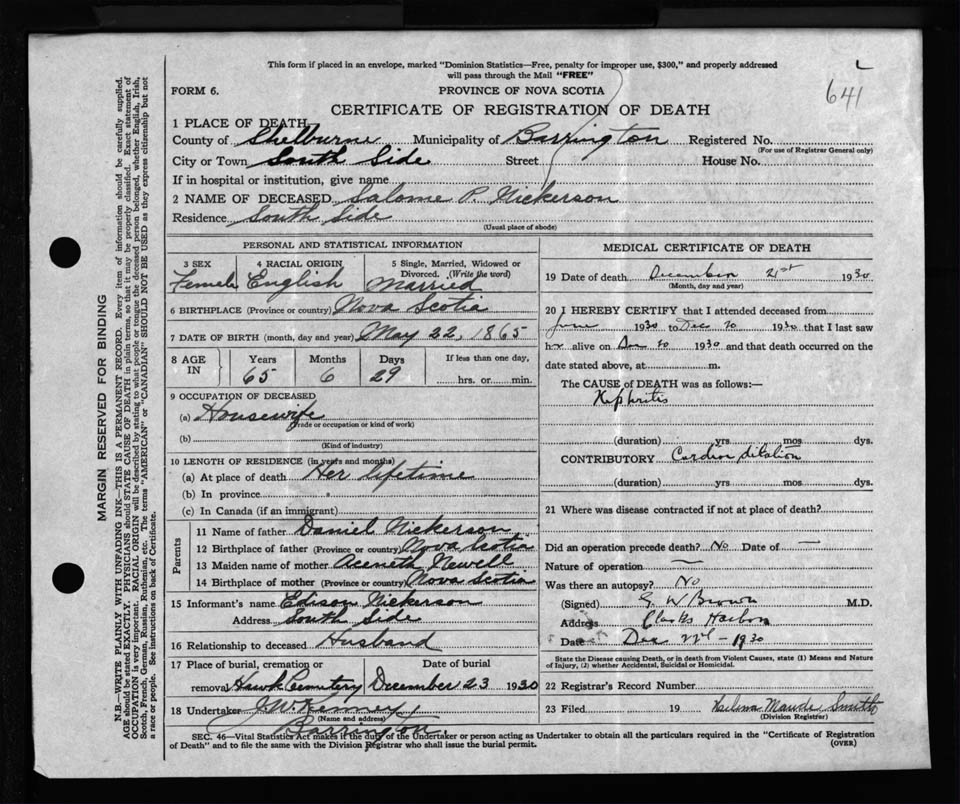 This form if placed in an envelope, marked "Dominion Statistics—Free, penalty for improper use, $300," and properly addressed
will pass through the Mail "FREE"
641
FORM 6.
PROVINCE OF NOVA SCOTIA
CERTIFICATE OF REGISTRATION OF DEATH
1 PLACE OF DEATH
County of Shelburne Municipality of Barrington Registered No.
(For use of Registrar General only)
City or Town South Side Street House No.
If in hospital or institution, give name
2 NAME OF DECEASED Salome P. Nickerson
Residence South Side
(Usual place of abode)
PERSONAL AND STATISTICAL INFORMATION
3 SEX 4 RACIAL ORIGIN 5 Single, Married, Widowed or
Divorced. (Write the word)
Female English Married
6 BIRTHPLACE (Province or country) Nova Scotia
7 DATE OF BIRTH (month, day and year) May 22, 1865
8 AGE IN Years Months Days If less than one day,
65 6 29 hrs. or min.
9 OCCUPATION OF DECEASED
(a) Housewife
(Trade or occupation or kind of work)
(b)
(Kind of industry)
10 LENGTH OF RESIDENCE (in years and months)
(a) At place of death Her lifetime
(b) In province
(c) In Canada (if an immigrant)
Parents
11 Name of father Daniel Nickerson
12 Birthplace of father (Province or country) Nova Scotia
13 Maiden name of mother Aceneth Newell
14 Birthplace of mother (Province or country) Nova Scotia
15 Informant's name Edison Nickerson
Address South Side
16 Relationship to deceased Husband
17 Place of burial, cremation or Date of burial
removal Hawk Cemetery December 23 1930
18 Undertaker J. W. Kenney
(Name and address)
Barrington.
MEDICAL CERTIFICATE OF DEATH
19 Date of death December 21st 1930
(Month, day and year)
20 I HEREBY CERTIFY that I attended deceased from
June 1930 to Dec 20 1930 that I last saw
her alive on Dec 20 1930 and that death occurred on the
date stated above, at m.
The CAUSE of DEATH was as follows:—
Nephritis
(duration) yrs mos dys.
CONTRIBUTORY Cardiac dilation
(duration) yrs. mos. dys.
21 Where was disease contracted if not at place of death?
Did an operation precede death? No Date of —
Nature of operation —
Was there an autopsy? No
(Signed) W Brown M.D.
Address Clarks Harbor
Date Dec 22 - 1930
State the Disease causing Death, or in death from Violent Causes, state (1) Means and Nature
of Injury, (2) whether Accidental, Suicidal or Homicidal.
22 Registrar's Record Number
23 Filed 19 Maude Smith
(Division Registrar)
SEC. 46—Vital Statistics Act makes it the duty of the Undertaker or person acting as Undertaker to obtain all the particulars required in the "Certificate of Registration
of Death" and to file the same with the Division Registrar who shall issue the burial permit.
(OVER)
MARGIN RESERVED FOR BINDING
N.B.—WRITE PLAINLY WITH UNFADING INK—THIS IS A PERMANENT RECORD. Every item of information should be carefully supplied.
AGE should be stated EXACTLY. PHYSICIANS should STATE CAUSE OF DEATH in plain terms, so that it may be properly classified. Exact statement of
OCCUPATION is very important. RACIAL ORIGIN will be described by stating to what people or tongue the deceased person belonged, whether English, Irish,
Scotch, French, German, Russian, Ruthenian, etc. The terms "AMERICAN" or "CANADIAN" SHOULD NOT BE USED as they express citizenship but not
a race or people. See instructions on back of Certificate.